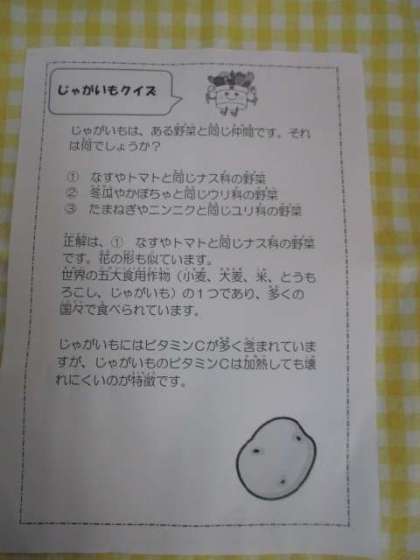 じゃがいもクイズ
じゃがいもは、ある野菜と同じ仲間です。それ
は何でしょうか？
① なすやトマトと同じナス科の野菜
② 冬瓜やかぼちゃと同じウリ科の野菜
③ たまねぎやニンニクと同じユリ科の野菜
正解は、① なすやトマトと同じナス科の野菜
です。花の形も似ています。
世界の五大食用作物（小麦、大麦、米、とうも
ろこし、じゃがいも）の１つであり、多くの
国々で食べられています。
じゃがいもにはビタミンCが多く含まれていま
すが、じゃがいものビタミンCは加熱しても壊
れにくいのが特徴です。